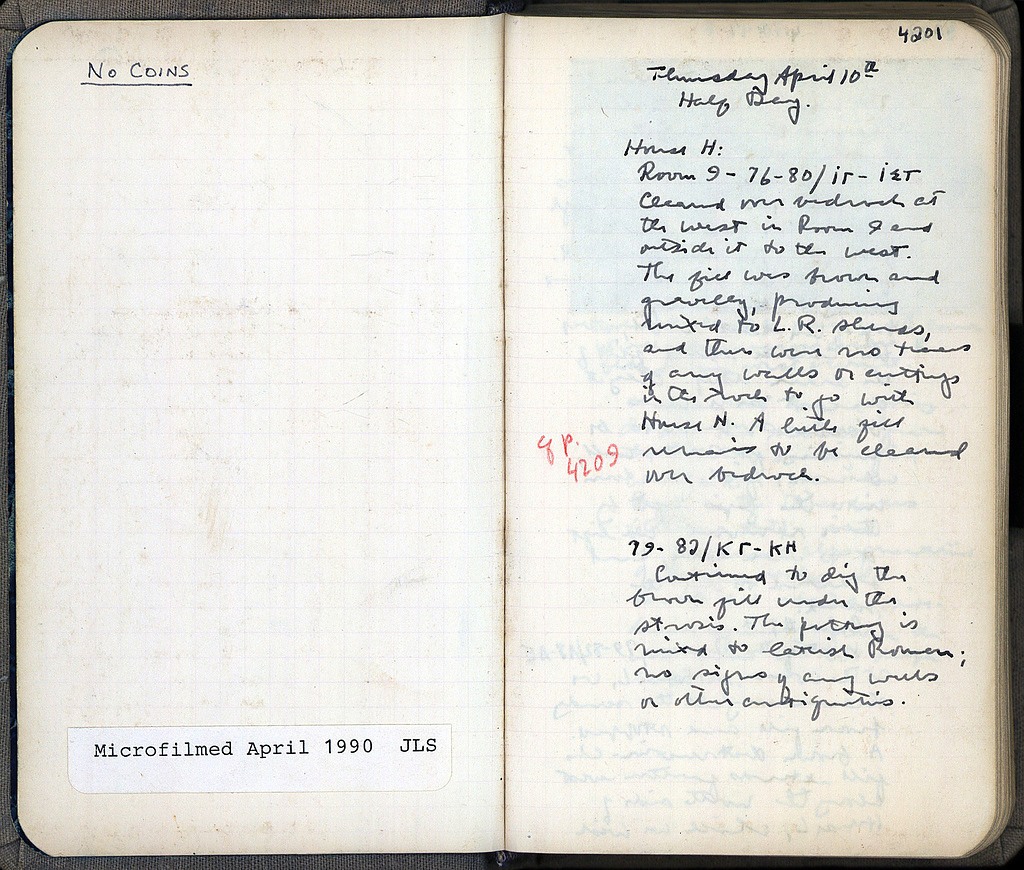 No COINS
Microfilmed April 1990 JLS
4201
Thursday April 10th
Half Day.
House H:
Room 9 - 76-80/ΙΓ - ΙΣΤ
Cleared over bedrock at
the west in Room 9 and
outside it to the west.
The fill was brown and
gravelly, producing
mixed to L.R. sherds,
and there were no traces
of any walls or cuttings
in the rock to go with
House H. A little fill
remains to be cleared
over bedrock.
cf p.
4209
79-83/ΚΓ-ΚΗ
Continued to dig the
brown fill under the
strosis. The pottery is
mixed to latish Roman;
no signs of any walls
or other antiquities.